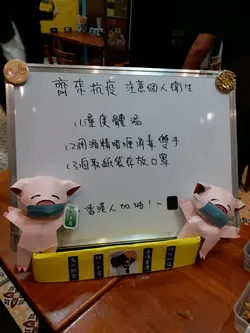 齊來抗疫 注意個人衛生
(1)量度體溫
(2)用酒精啫喱消毒雙手
(3)自取紙袋存放口罩
香港人加油!~